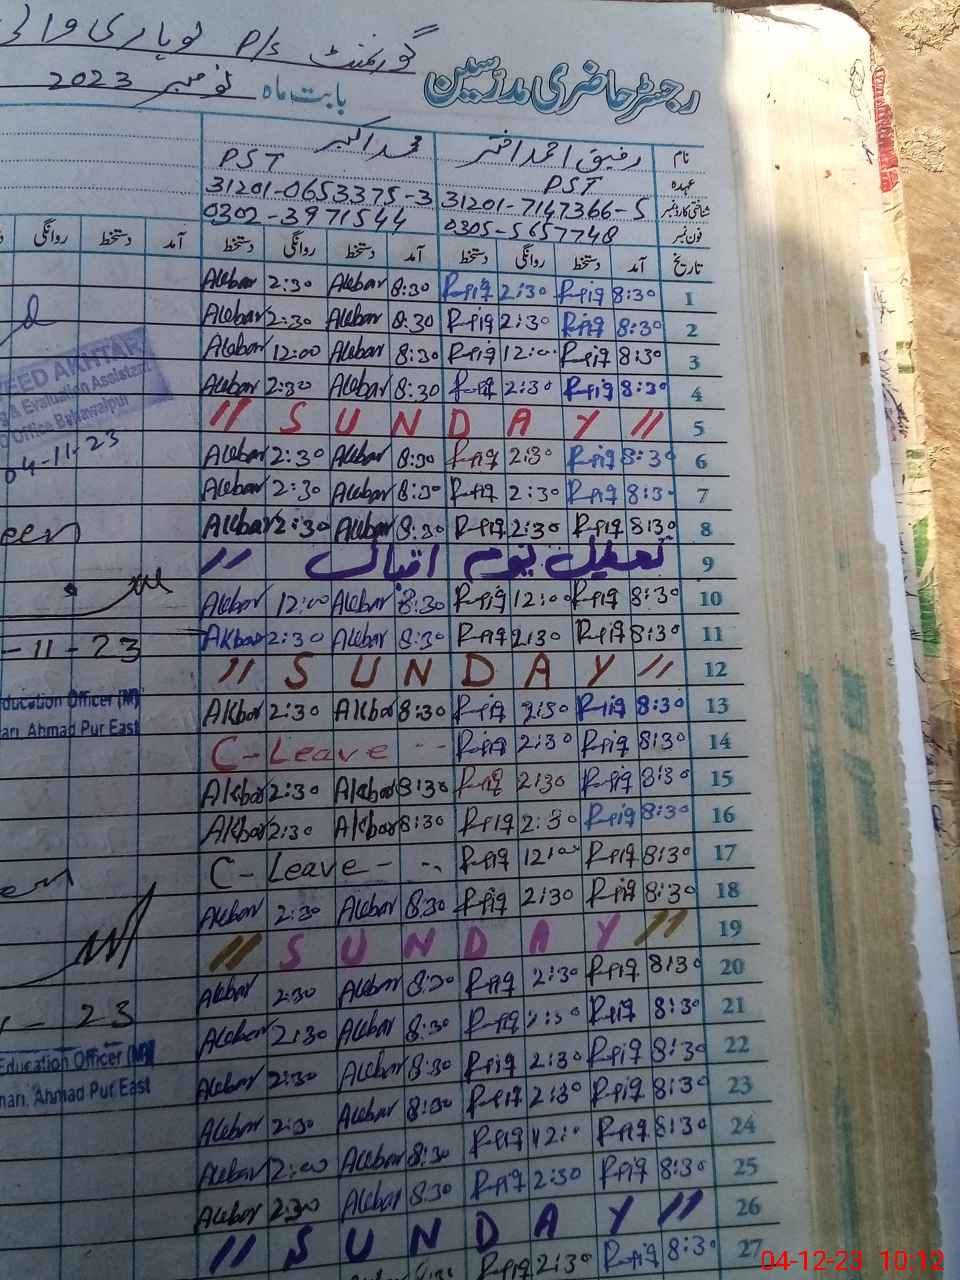 رجسٹر حاضری مدرسین
گورنمنٹ P/s
بابت ماہ نومبر 2023
نام رفیق احمد اختر محمد اکبر
عہدہ PST PST
شناختی کارڈ نمبر 31201-7147366-5 31201-0653375-3
فون نمبر 0305-5657748 0302-3971544
تاریخ آمد دستخط روانگی دستخط آمد دستخط روانگی دستخط آمد دستخط روانگی
1 8:30 Rafiq 2:30 Rafiq 8:30 Akbar 2:30 Akbar
2 8:30 Rafiq 2:30 Rafiq 8:30 Akbar 2:30 Akbar
3 8:30 Rafiq 12:00 Rafiq 8:30 Akbar 12:00 Akbar
4 8:30 Rafiq 2:30 Rafiq 8:30 Akbar 2:30 Akbar
5 // S U N D A Y //
6 8:30 Rafiq 2:30 Rafiq 8:30 Akbar 2:30 Akbar
7 8:30 Rafiq 2:30 Rafiq 8:30 Akbar 2:30 Akbar
8 8:30 Rafiq 2:30 Rafiq 8:30 Akbar 2:30 Akbar
9 تعطیل یوم اقبال //
10 8:30 Rafiq 12:00 Rafiq 8:30 Akbar 12:00 Akbar
11 8:30 Rafiq 2:30 Rafiq 8:30 Akbar 2:30 Akbar
12 // S U N D A Y //
13 8:30 Rafiq 2:30 Rafiq 8:30 Akbar 2:30 Akbar
14 8:30 Rafiq 2:30 Rafiq C-Leave --
15 8:30 Rafiq 2:30 Rafiq 8:30 Akbar 2:30 Akbar
16 8:30 Rafiq 2:30 Rafiq 8:30 Akbar 2:30 Akbar
17 8:30 Rafiq 12:00 Rafiq C-Leave - --
18 8:30 Rafiq 2:30 Rafiq 8:30 Akbar 2:30 Akbar
19 // S U N D A Y //
20 8:30 Rafiq 2:30 Rafiq 8:30 Akbar 2:30 Akbar
21 8:30 Rafiq 2:30 Rafiq 8:30 Akbar 2:30 Akbar
22 8:30 Rafiq 2:30 Rafiq 8:30 Akbar 2:30 Akbar
23 8:30 Rafiq 2:30 Rafiq 8:30 Akbar 2:30 Akbar
24 8:30 Rafiq 12:0 Rafiq 8:30 Akbar 12:00 Akbar
25 8:30 Rafiq 2:30 Rafiq 8:30 Akbar 2:30 Akbar
26 // S U N D A Y //
27 8:30 Rafiq 2:30 Rafiq 8:30 Akbar
EED AKHTAR
& Evaluation Assistant
Office Bahawalpur
04-11-23
-11-23
ducation Officer (M)
an. Ahmad Pur East
- 23
Education Officer (M)
man. Ahmad Pur East
04-12-23 10:12